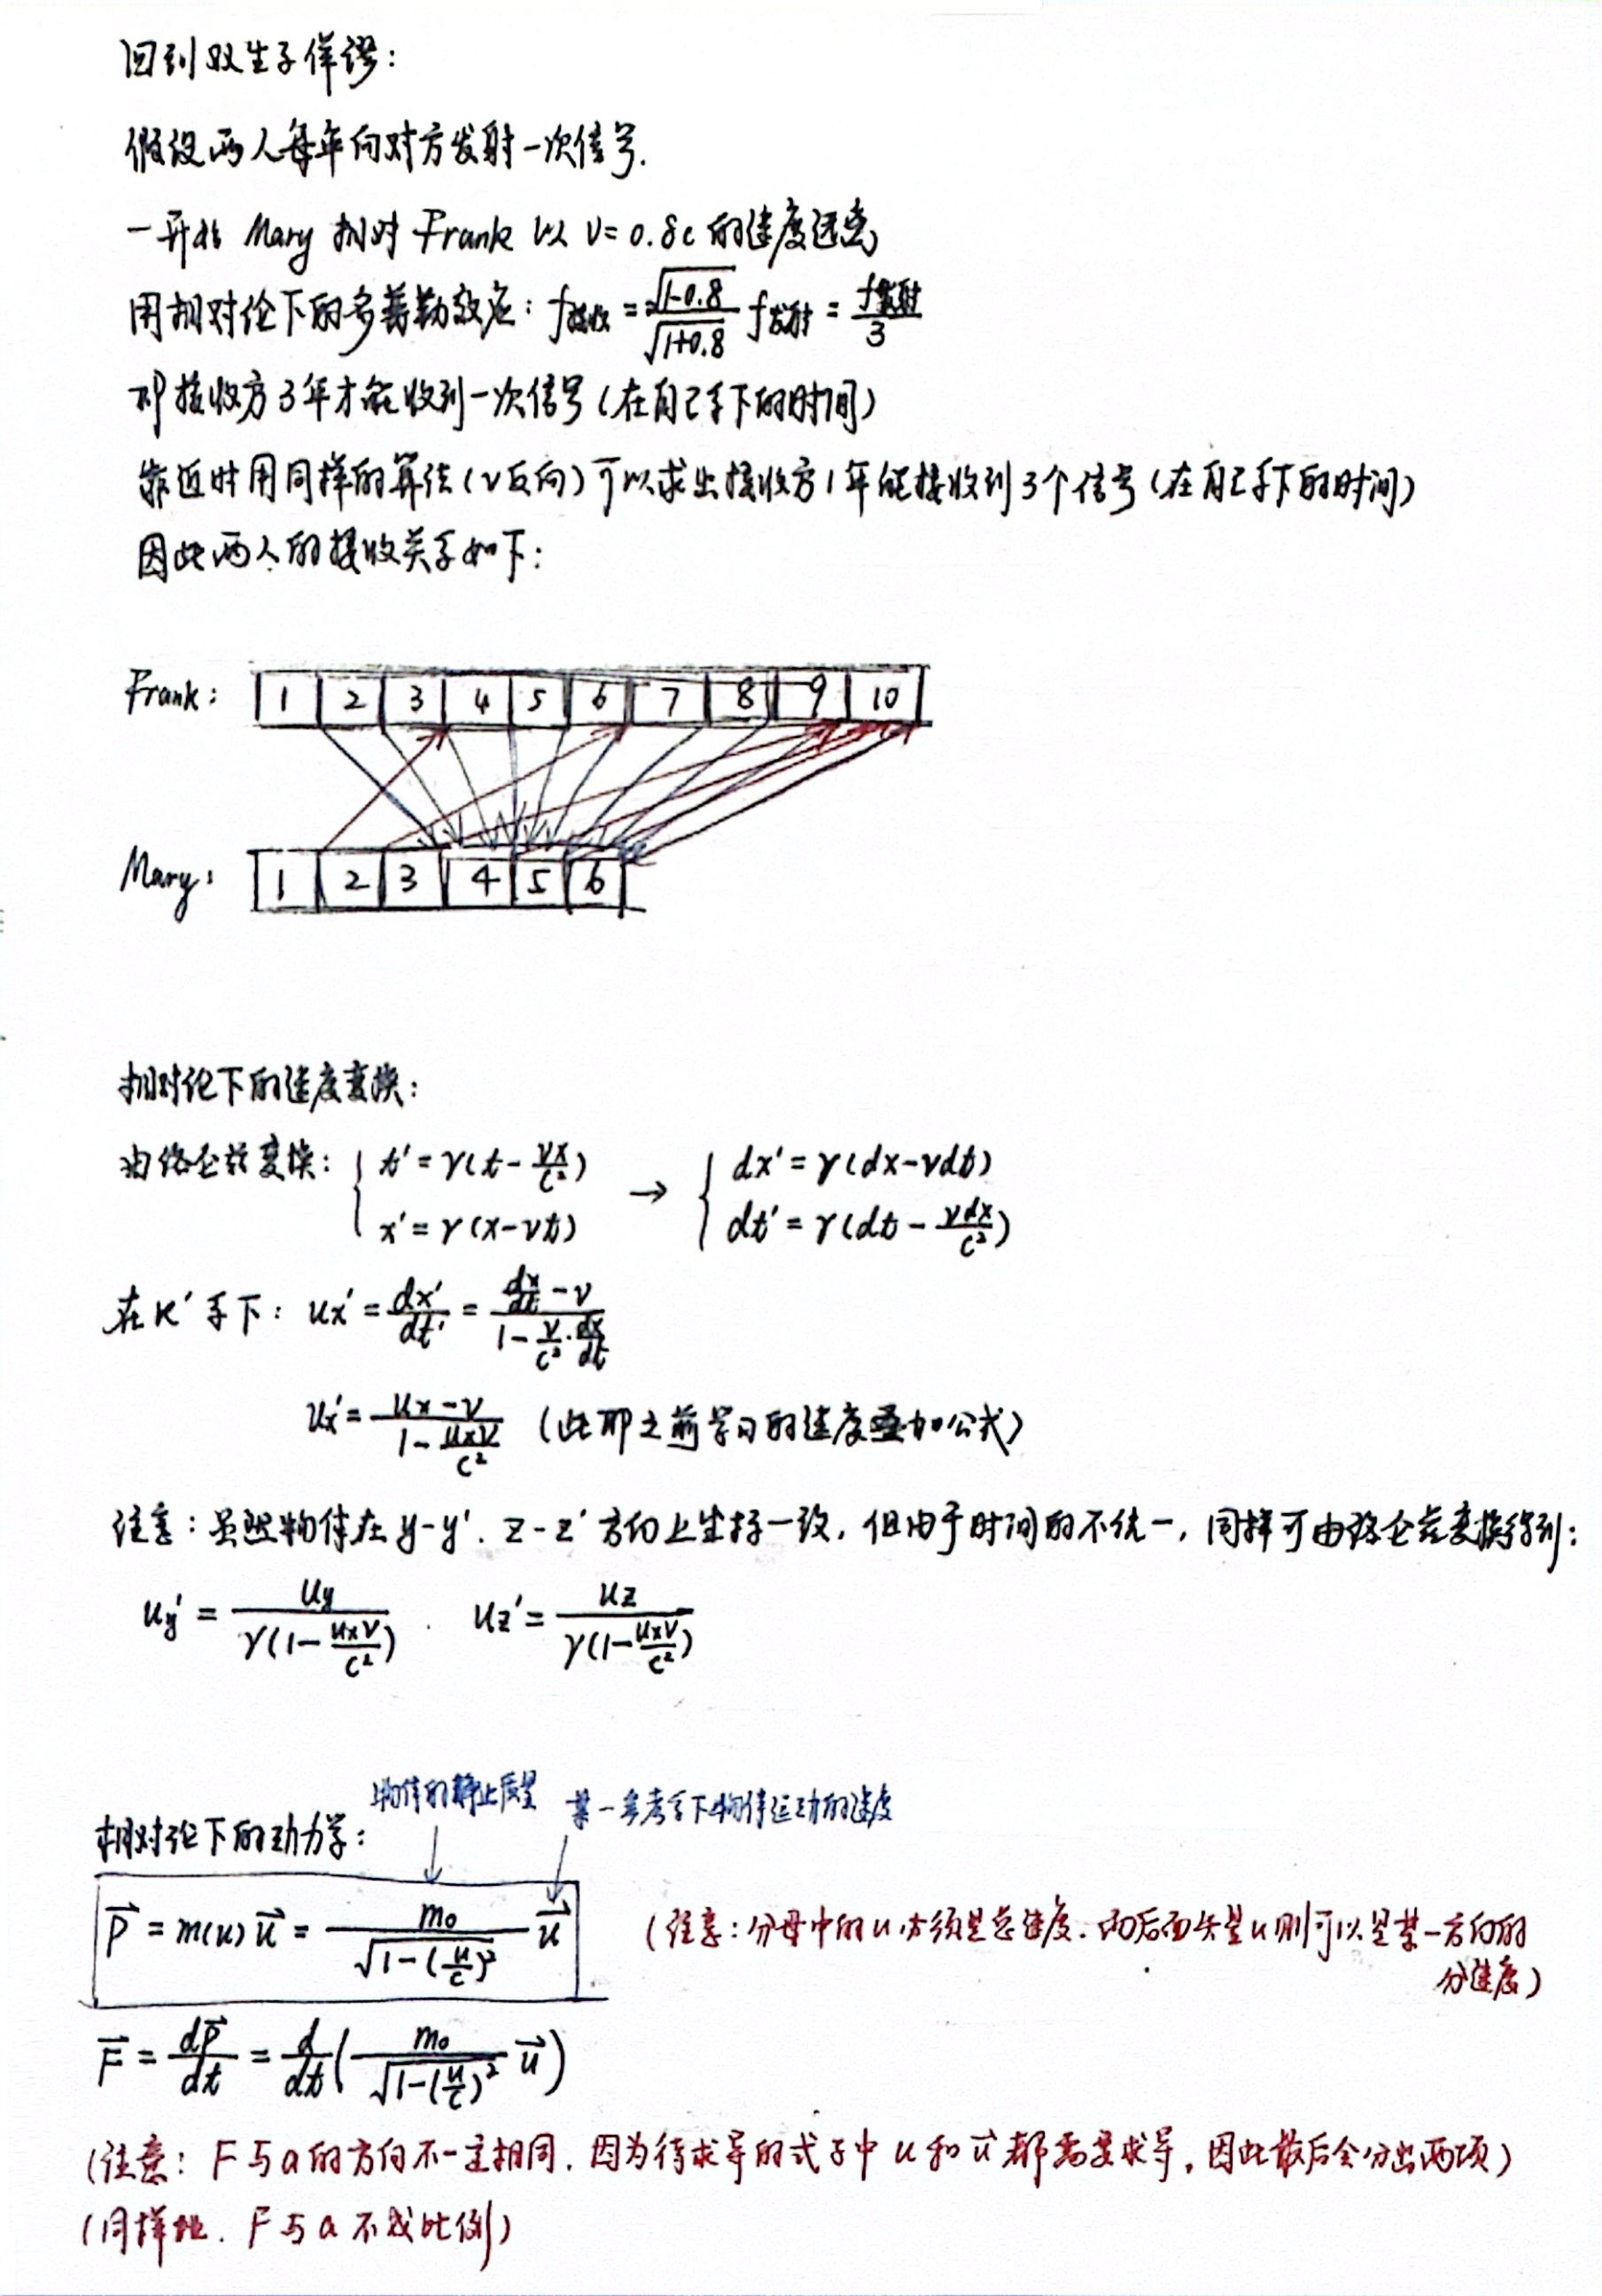 回到双生子佯谬：
假设两人每年向对方发射一次信号.
一开始 Mary 相对 Frank 以 v=0.8c 的速度远离
用相对论下的多普勒效应：f接收 = √(1-0.8)/√(1+0.8) f发射 = f发射/3
即接收方3年才能收到一次信号（在自己系下的时间）
靠近时用同样的算法（v反向）可以求出接收方1年能接收到3个信号（在自己系下的时间）
因此两人的接收关系如下：
Frank: 1 2 3 4 5 6 7 8 9 10
Mary: 1 2 3 4 5 6
相对论下的速度变换：
由洛仑兹变换：{ t' = γ(t - vx/c²) → { dx' = γ(dx-vdt)
x' = γ(x-vt) dt' = γ(dt - vdx/c²)
在K'系下：ux' = dx'/dt' = (dx/dt - v)/(1 - v/c²·dx/dt)
ux' = (ux-v)/(1 - uxv/c²) （此即之前学习的速度叠加公式）
注意：虽然物体在 y-y'. z-z' 方向上坐标一致，但由于时间的不统一，同样可由洛仑兹变换得到：
uy' = uy/(γ(1 - uxv/c²)) . uz' = uz/(γ(1 - uxv/c²))
物体的静止质量 某一参考系下物体运动的速度
相对论下的动力学：
P⃗ = m(u)u⃗ = m₀/√(1-(u/c)²) u⃗ （注意：分母中的u必须是总速度.而后面矢量u则可以是某一方向的
分速度）
F⃗ = dP⃗/dt = d/dt(m₀/√(1-(u/c)²) u⃗)
（注意：F与a的方向不一定相同. 因为待求导的式子中 u 和 u⃗ 都需要求导，因此最后会分出两项）
（同样地. F与a不成比例）